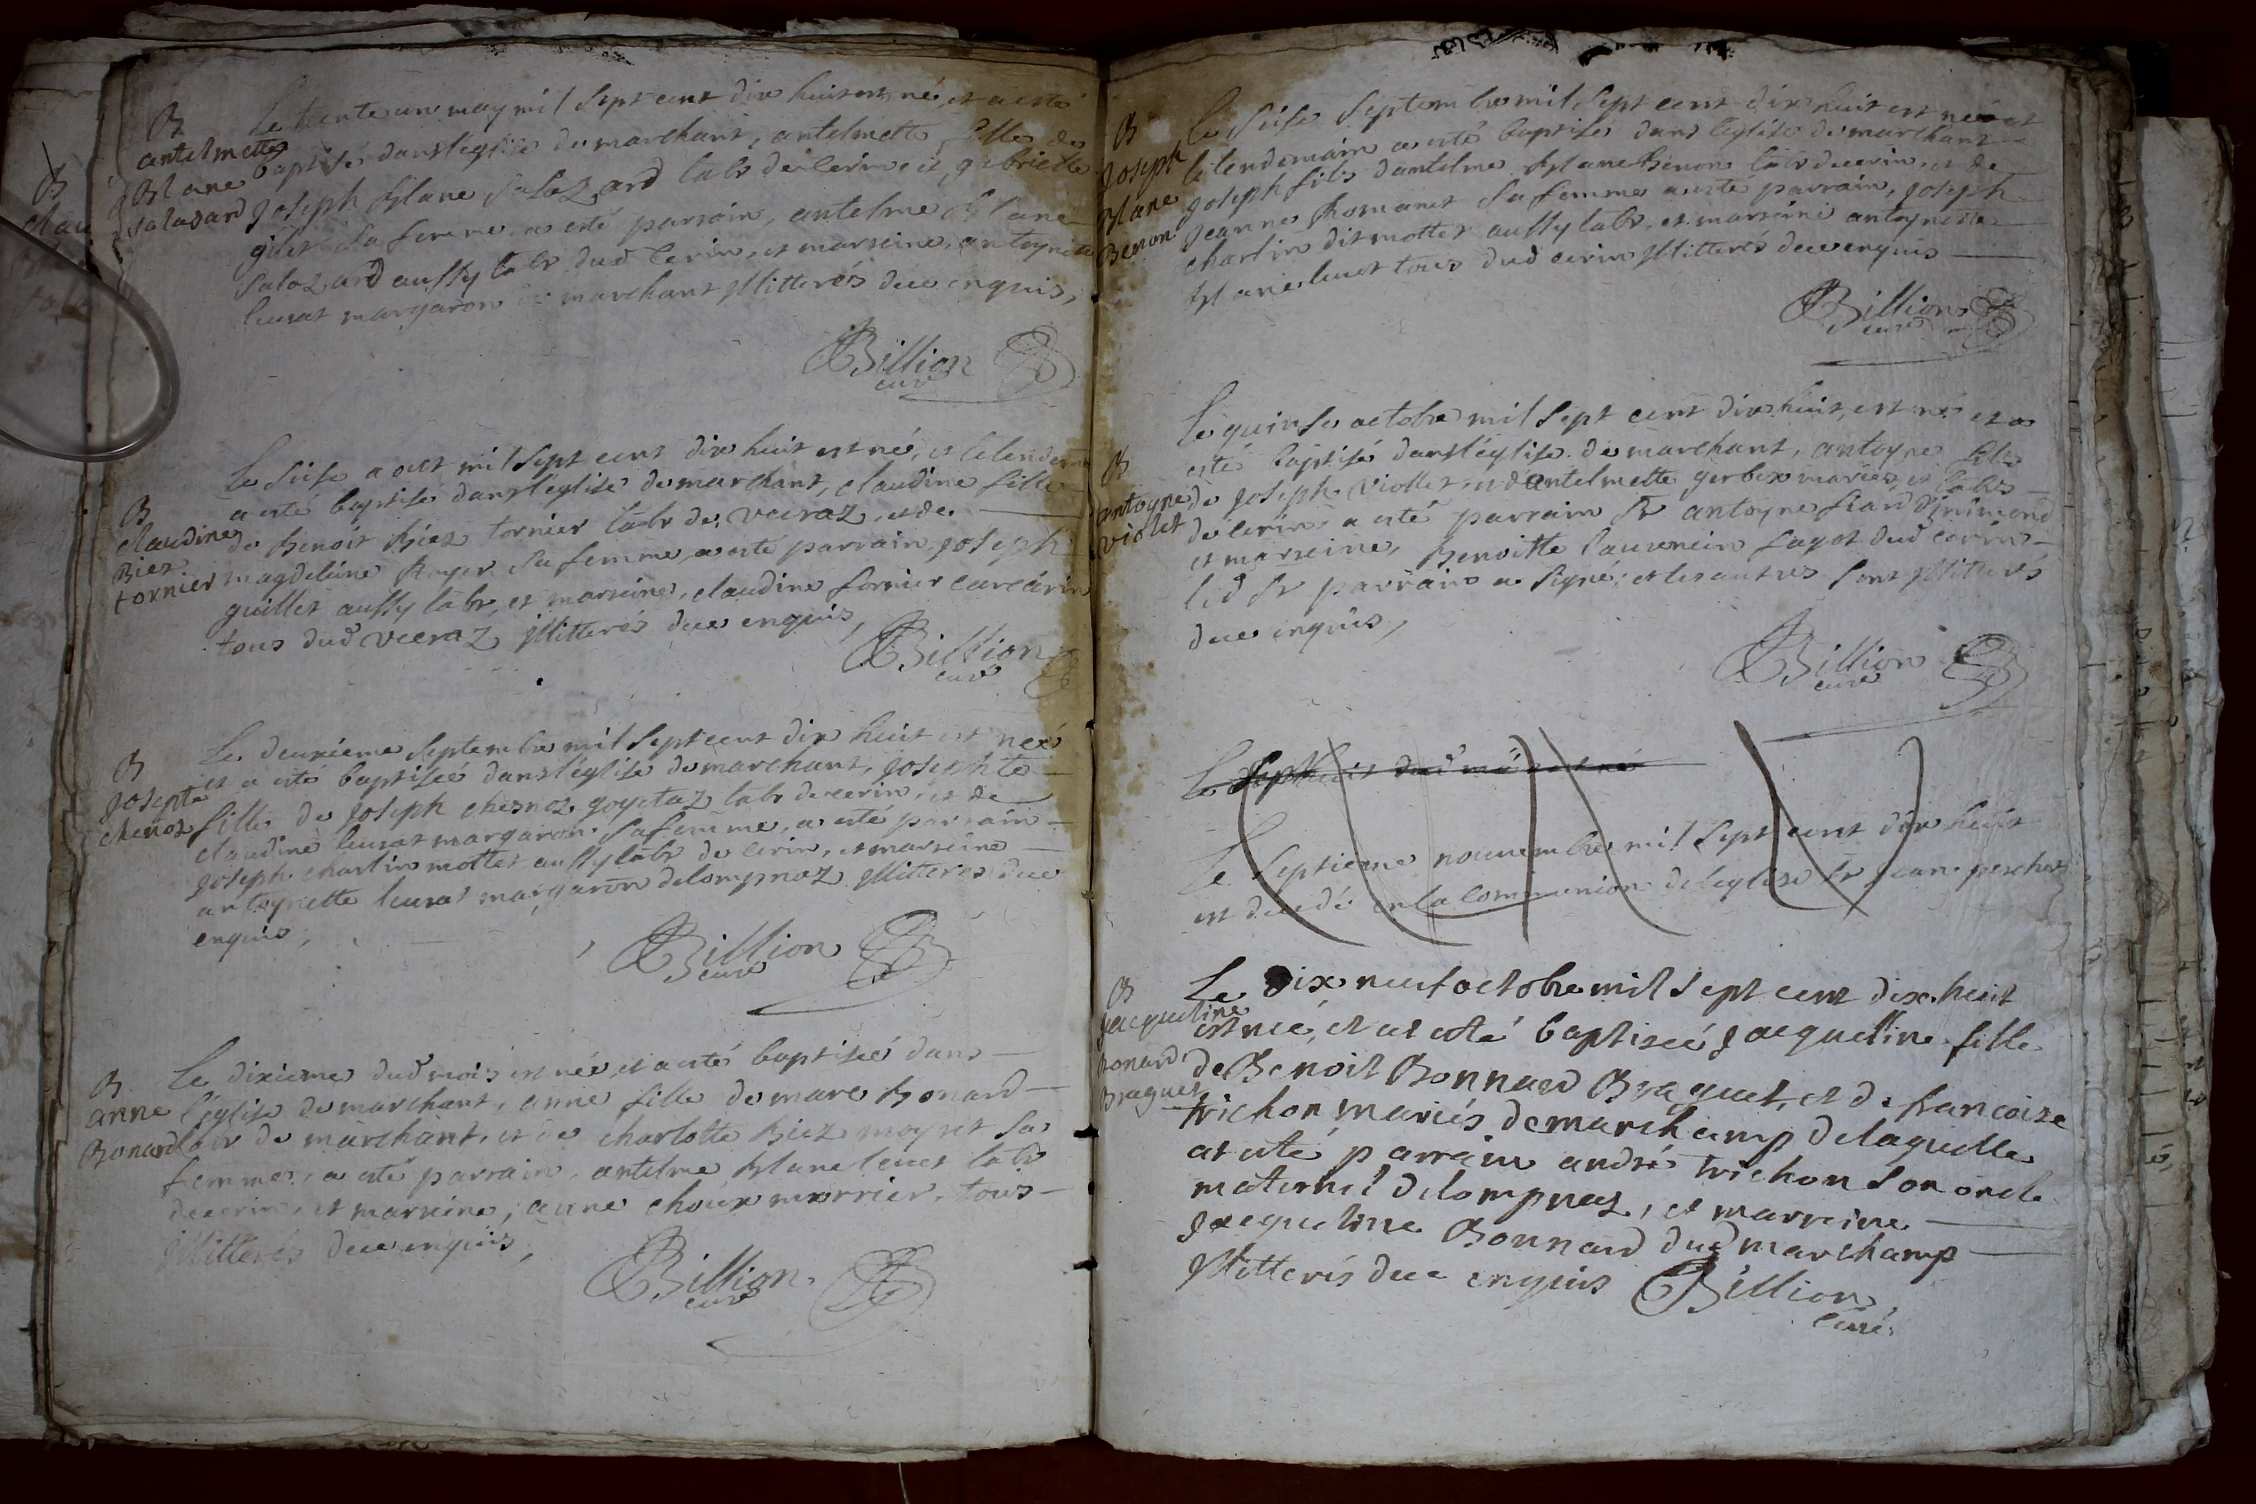 B
antelmette
Blanc
salazard
Le trente un may mil sept cent dix huit est né, et a esté
baptisé, dans léglise de marchant, antelmette fille de
joseph Blanc salozard labr de cerin, et, gabrielle
gillet sa femme, a esté parrain, antelme Blanc
Salozard aussy labr dud cerin, et marreine, antoynette
leurat margaron de marchant jllitterés de ce enquis,
Billion
curé
B
claudine
Biez
tornier
Le seise aout mil sept cent dix huit est né, et le lendemain
a esté baptisé dans léglise de marchant, claudine fille
de Benoit Biez tornier labr de veeraz, et de
magdeleine Royer sa femme, a esté parrain, joseph
guillet aussy labr, et marreine, claudine fornier
tous dud veeraz jllitterés de ce enquis,
Billion
curé
B
josephte
chenoz
Le deuxieme septembre mil sept cent dix huit est neé
et a esté baptiseé dans léglise de marchant, josephte
fille de joseph chesnoz goyetaz labr de cerin, et de
claudine leurat margaron sa femme, a esté parrain
joseph charlin mottet aussy labr de cerin, et marreine
antoynette leurat margaron delompnaz jllitterés de ce
enquis,
Billion
curé
B
anne
Bonard
Le dixieme dud mois est neé, et a esté baptiseé dans
léglise de marchant, anne fille de marc Bonard
labr de marchant, et de charlotte Biez moyret sa
femme, a esté parrain, antelme Blanc leuet labr
de cerin, et marreine, anne choux morrier, tous
jllitterés de ce enquis,
Billion
curé
B
joseph
Blanc
Benon
Le seise septembre mil sept cent dix huit est né et
le lendemain a esté baptisé dans léglise de marchant
joseph fils dantelme Blanc Benon labr de cerin, et de
jeanne Romanet sa femme a esté parrain, joseph
charlin dit mottet aussy labr, et marreine antoynette
Blanc leuet tous dud cerin jllitterés de ce enquis
Billion
curé
B
antoyne
violet
Le quinse octobre mil sept cent dix huit, est né et a
esté baptisé dans léglise de marchant, antoyne fils
de joseph viollet, et dantelmette gerbex mariés, et labrs
de cerin, a esté parrain Sr antoyne siand
et marreine, Benoitte laurencin fagot dud cerin
led Sr parrain a signé, et les autres sont jllitterés
de ce enquis,
Billion
curé
Le dud
Le septieme nouembre mil sept cent dix huit
est decedé en la communion de leglise Sr jean
B
jacqueline
Bonard
Braguet
Le dix neuf octobre mil sept cent dix huit
est neé, et at esté baptiseé jacqueline fille
de Benoit Bonnard Braguet, et de francoise
trichon mariés de marchamp de laquelle
at esté parrain andré trichon son oncle
maternel delompnaz, et marreine
jacqueline Bonnard dud marchamp
jllitterés de ce enquis Billion
curé